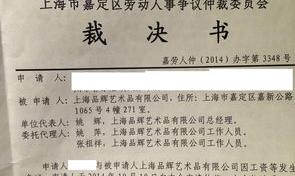 上海市嘉定区劳动人事争议仲裁委员会
裁决书
嘉劳人仲(2014)办字第3348号
申请人:
被申请人:上海品辉艺术品有限公司,住所:上海市嘉定区嘉新公路
1065号4幢271室.
单位代表人:姚辉,上海品辉艺术品有限公司总经理.
委托代理人:姚萍,上海品辉艺术品有限公司工作人员.
张祖祥,上海品辉艺术品有限公司工作人员.
申请人 与被申请人上海品辉艺术品有限公司因工资等发生